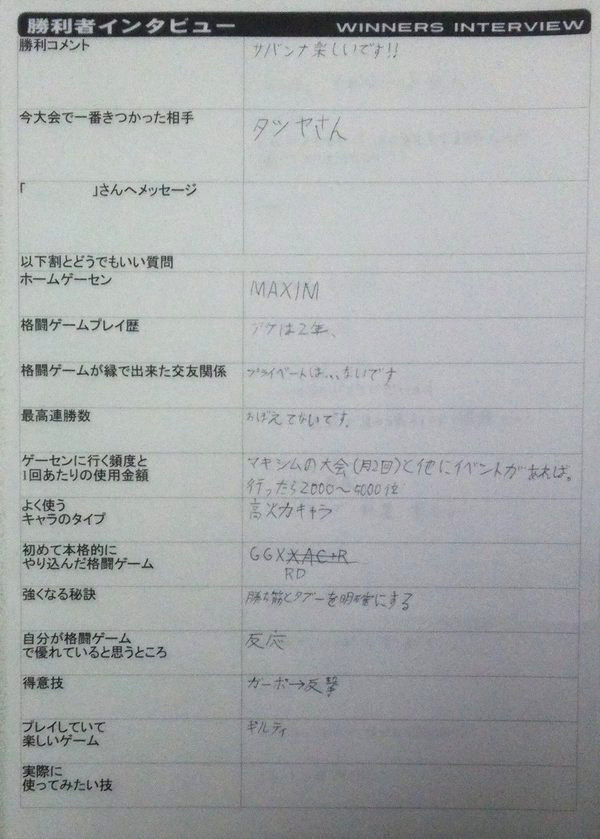 勝利者インタビュー WINNERS INTERVIEW
勝利コメント サバンナ楽しいです!!
今大会で一番きつかった相手 タツヤさん
「 」さんへメッセージ
以下割とどうでもいい質問
ホームゲーセン MAXIM
格闘ゲームプレイ歴 アケは2年、
格闘ゲームが縁で出来た交友関係 プライベートは、、、ないです
最高連勝数 おぼえてないです。
ゲーセンに行く頻度と マキシムの大会(月2回)と他にイベントがあれば。
1回あたりの使用金額 行ったら2000~5000位
よく使う 高火力キャラ
キャラのタイプ
初めて本格的に GGXXAC+R
やり込んだ格闘ゲーム RD
強くなる秘訣 勝ち筋とタブーを明確にする
自分が格闘ゲーム 反応
で優れていると思うところ
得意技 ガーポ→反撃
プレイしていて ギルティ
楽しいゲーム
実際に
使ってみたい技